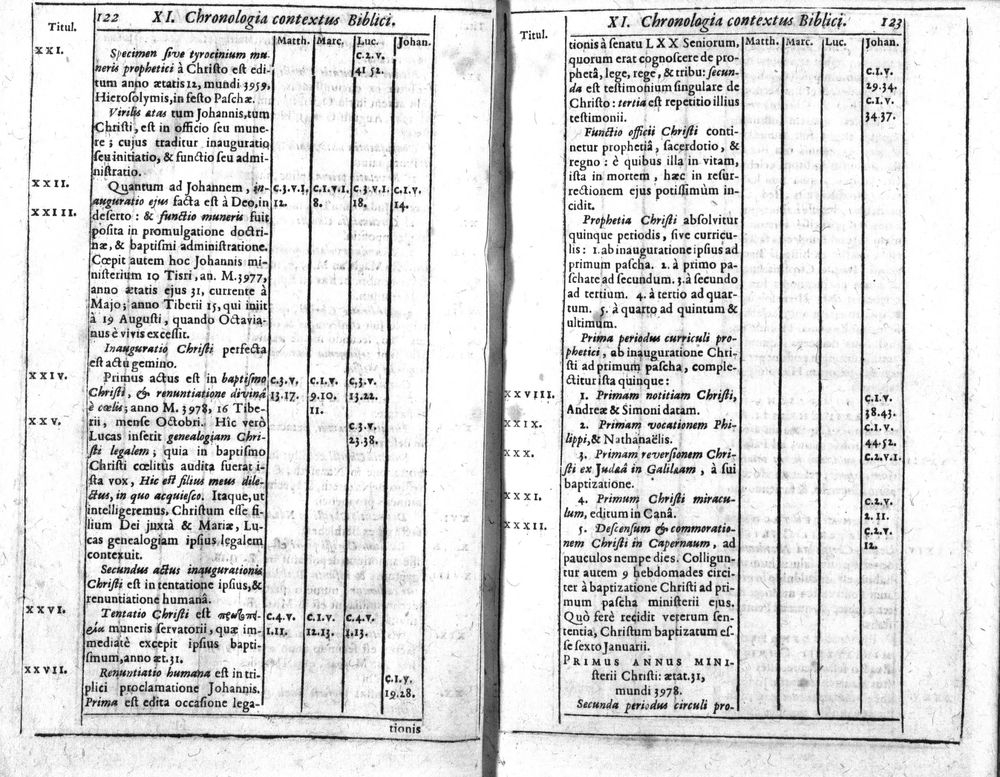 122 XI. Chronologia contextus Biblici.
Titul. Matth. Marc. Luc. Johan.
XXI. Specimen sive tyrocinium mu- C.2.v.
neris prophetici à Christo est edi- 41 52.
tum anno ætatis 12, mundi 3959,
Hierosolymis, in festo Paschæ.
Virilis ætas tum Johannis, tum
Christi, est in officio seu mune-
re; cujus traditur inauguratio
seu initiatio, & functio seu admi-
nistratio.
XXII. Quantum ad Johannem, in- C.3.v.1, C.1.v.1. C.3.v.1. C.1.v.
auguratio ejus facta est à Deo, in 12. 8. 18. 14.
XXIII. deserto: & functio muneris fuit
posita in promulgatione doctri-
næ, & baptismi administratione.
Cœpit autem hoc Johannis mi-
nisterium 10 Tisri, an. M. 3977,
anno ætatis ejus 31, currente à
Majo; anno Tiberii 15, qui iniit
à 19 Augusti, quando Octavia-
nus è vivis excessit.
Inauguratio Christi perfecta
est actu gemino.
XXIV. Primus actus est in baptismo C.3.v. C.1.v. C.3.v.
Christi, & renuntiatione divinâ 13.17. 9.10. 13.22.
è cœlis; anno M. 3978, 16 Tibe- 11.
XXV. rii, mense Octobri. Hîc verò C.3.v.
Lucas inserit genealogiam Chri- 23.38.
sti legalem; quia in baptismo
Christi cœlitùs audita fuerat i-
sta vox, Hic est filius meus dile-
ctus, in quo acquiesco. Itaque, ut
intelligeremus, Christum esse fi-
lium Dei juxtà & Mariæ, Lu-
cas genealogiam ipsius legalem
contexuit.
Secundus actus inaugurationis
Christi est in tentatione ipsius, &
renuntiatione humanâ.
XXVI. Tentatio Christi est C.4.v. C.1.v. C.4.v.
muneris servatorii, quæ im- 1.11. 12.13. 1.13.
mediatè excepit ipsius bapti-
smum, anno æt. 31.
XXVII. Renuntiatio humana est in tri- C.1.v.
plici proclamatione Johannis. 19.28.
Prima est edita occasione lega-
tionis
XI. Chronologia contextus Biblici. 123
Titul. Matth. Marc. Luc. Johan.
tionis à senatu LXX Seniorum,
quorum erat cognoscere de pro-
phetâ, lege, rege, & tribu: secun- C.1.v.
da est testimonium singulare de 29.34.
Christo: tertia est repetitio illius C.1.v.
testimonii. 34 37.
Functio officii Christi conti-
netur prophetiâ, sacerdotio, &
regno: è quibus illa in vitam,
ista in mortem, hæc in resur-
rectionem ejus potissimùm in-
cidit.
Prophetia Christi absolvitur
quinque periodis, sive curricu-
lis: 1. ab inauguratione ipsius ad
primum pascha. 2. à primo pa-
schate ad secundum. 3. à secundo
ad tertium. 4. à tertio ad quar-
tum. 5. à quarto ad quintum &
ultimum.
Prima periodus curriculi pro-
phetici, ab inauguratione Chri-
sti ad primum pascha, comple-
ctitur ista quinque:
XXVIII. 1. Primam notitiam Christi, C.1.v.
Andreæ & Simoni datam. 38.43.
XXIX. 2. Primam vocationem Phi- C.1.v.
lippi, & Nathanaëlis. 44.52.
XXX. 3. Primam reversionem Chri- C.2.v.1.
sti ex Judæâ in Galilæam, à sui
baptizatione.
XXXI. 4. Primum Christi miracu- C.2.v.
lum, editum in Canâ. 2.11.
XXXII. 5. Descensum & commoratio- C.2.v.
nem Christi in Capernaum, ad 12.
pauculos nempe dies. Colligun-
tur autem 9 hebdomades circi-
ter à baptizatione Christi ad pri-
mum pascha ministerii ejus.
Quò ferè recidit veterum sen-
tentia, Christum baptizatum es-
se sexto Januarii.
PRIMUS ANNUS MINI-
sterii Christi: ætat. 31,
mundi 3978.
Secunda periodus circuli pro-